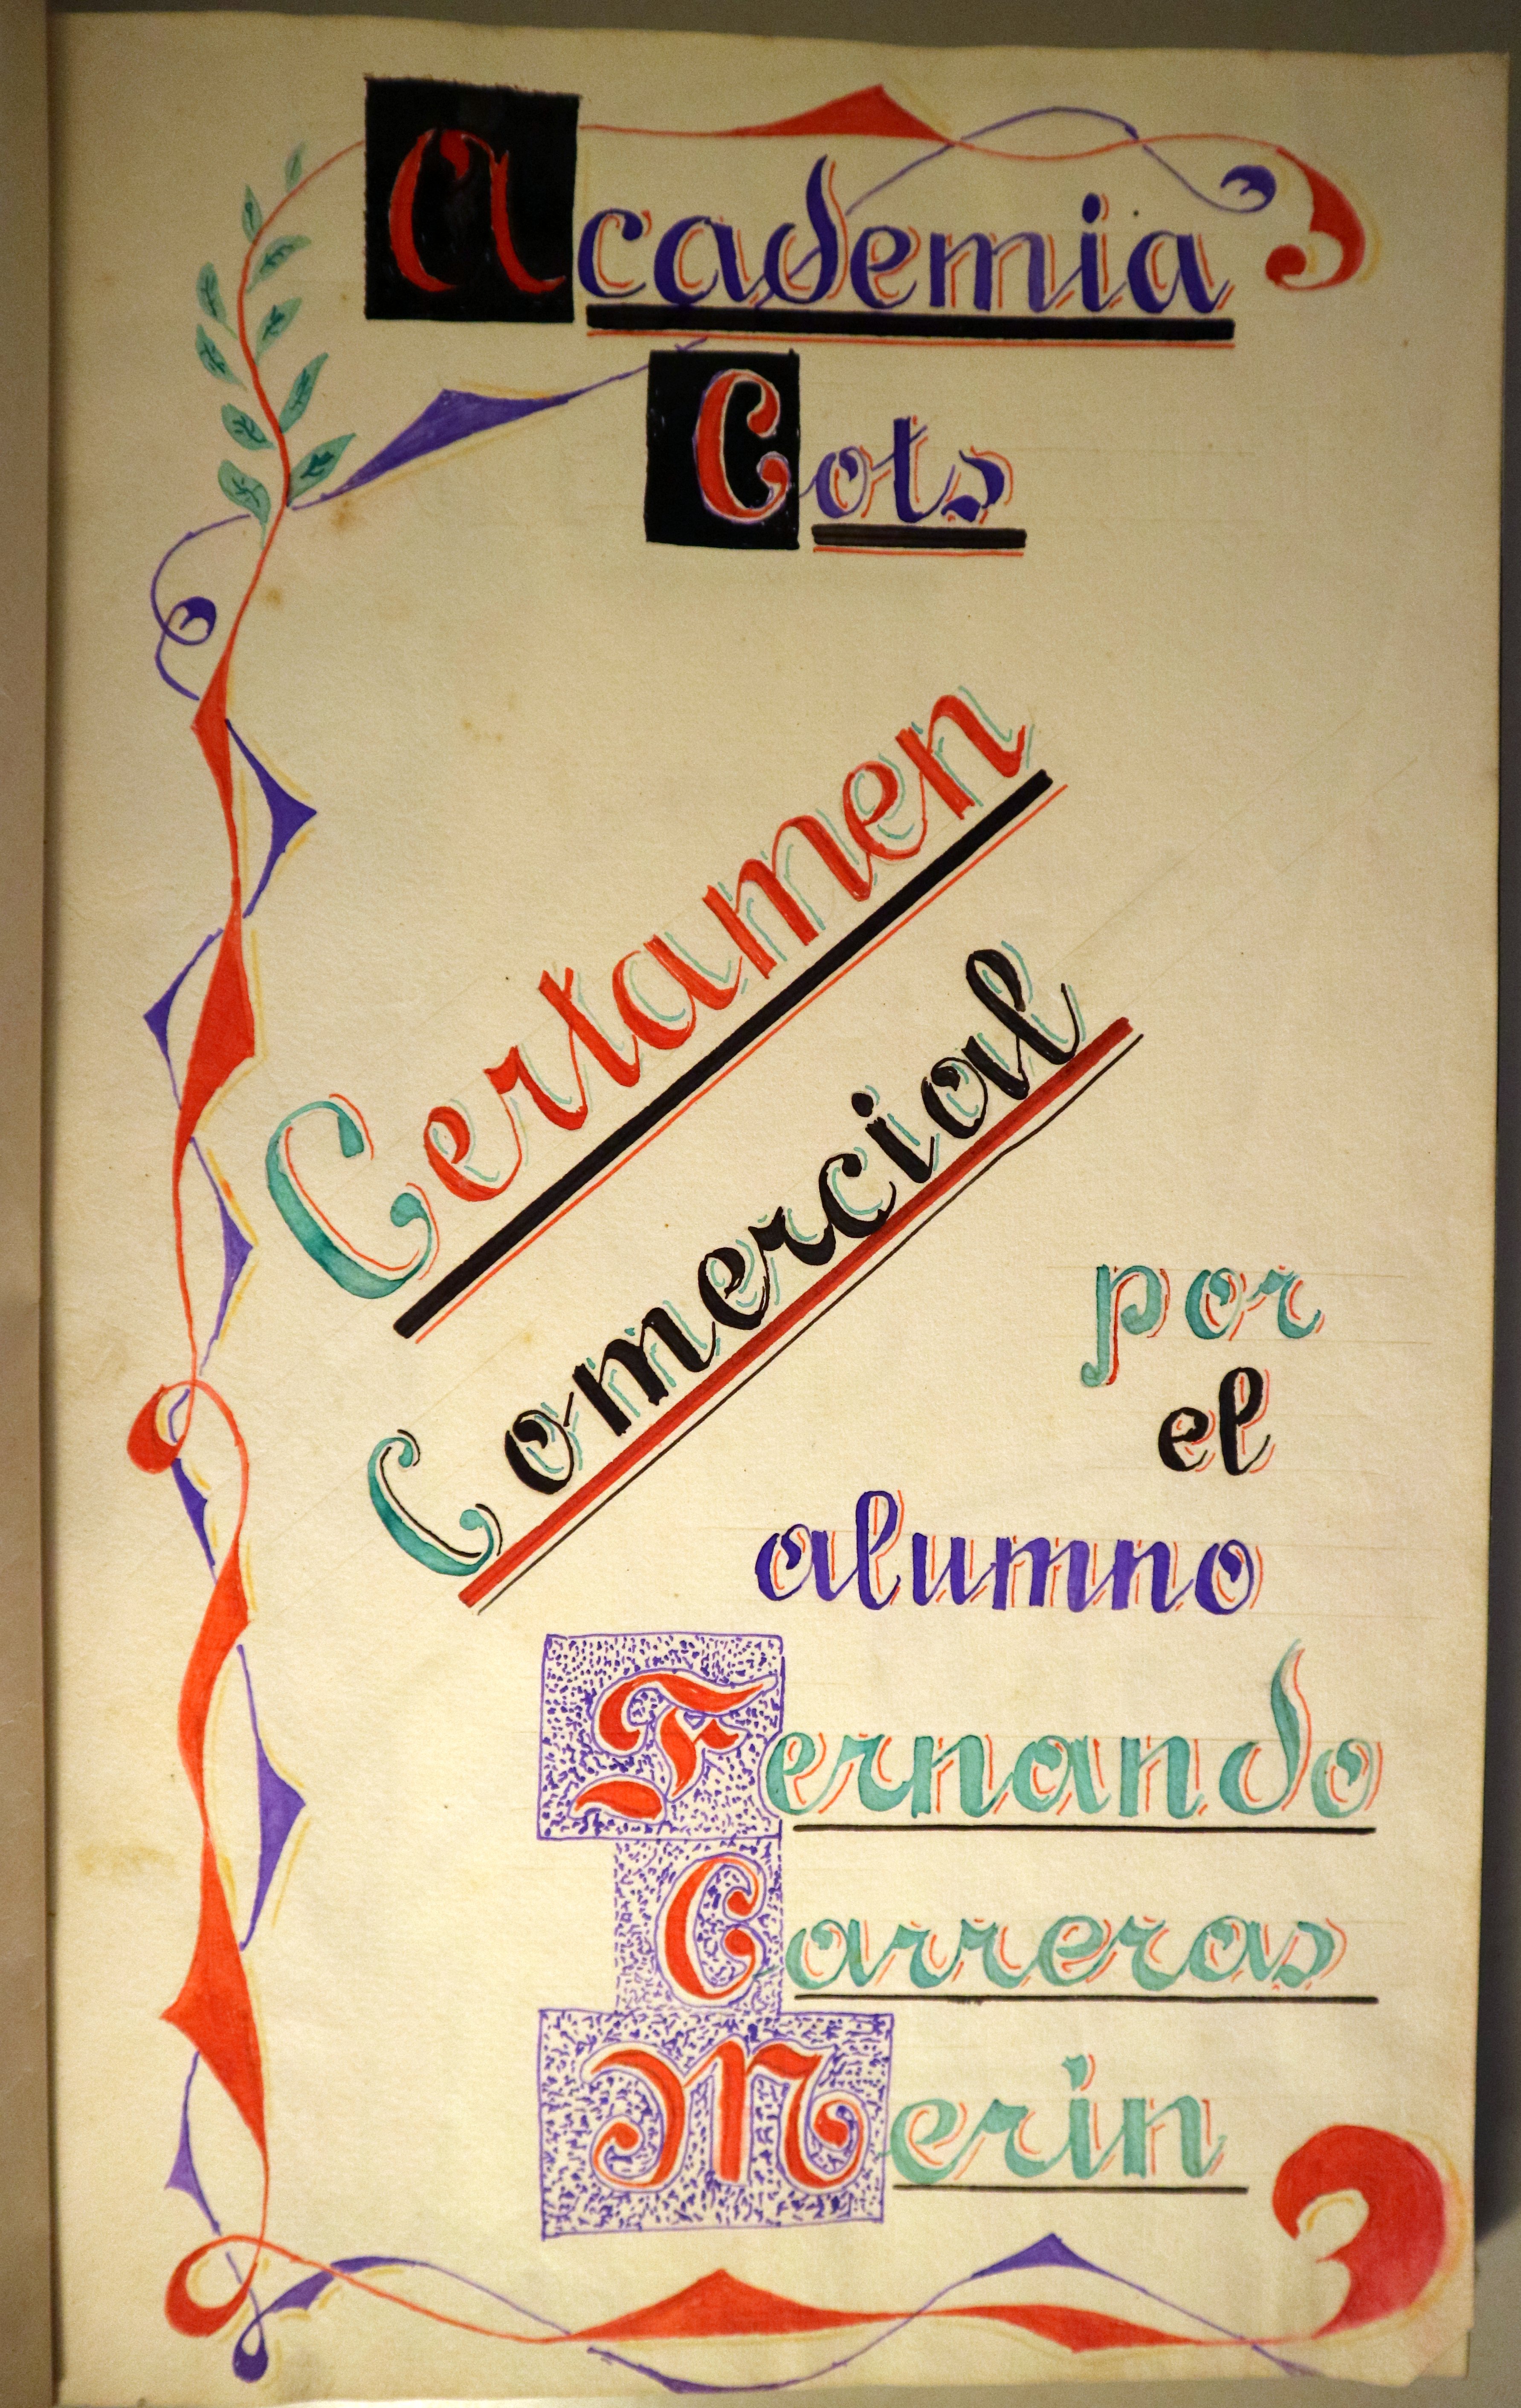 Academia
Cots
Certamen
Comercial
por
el
alumno
Fernando
Carreras
Merin